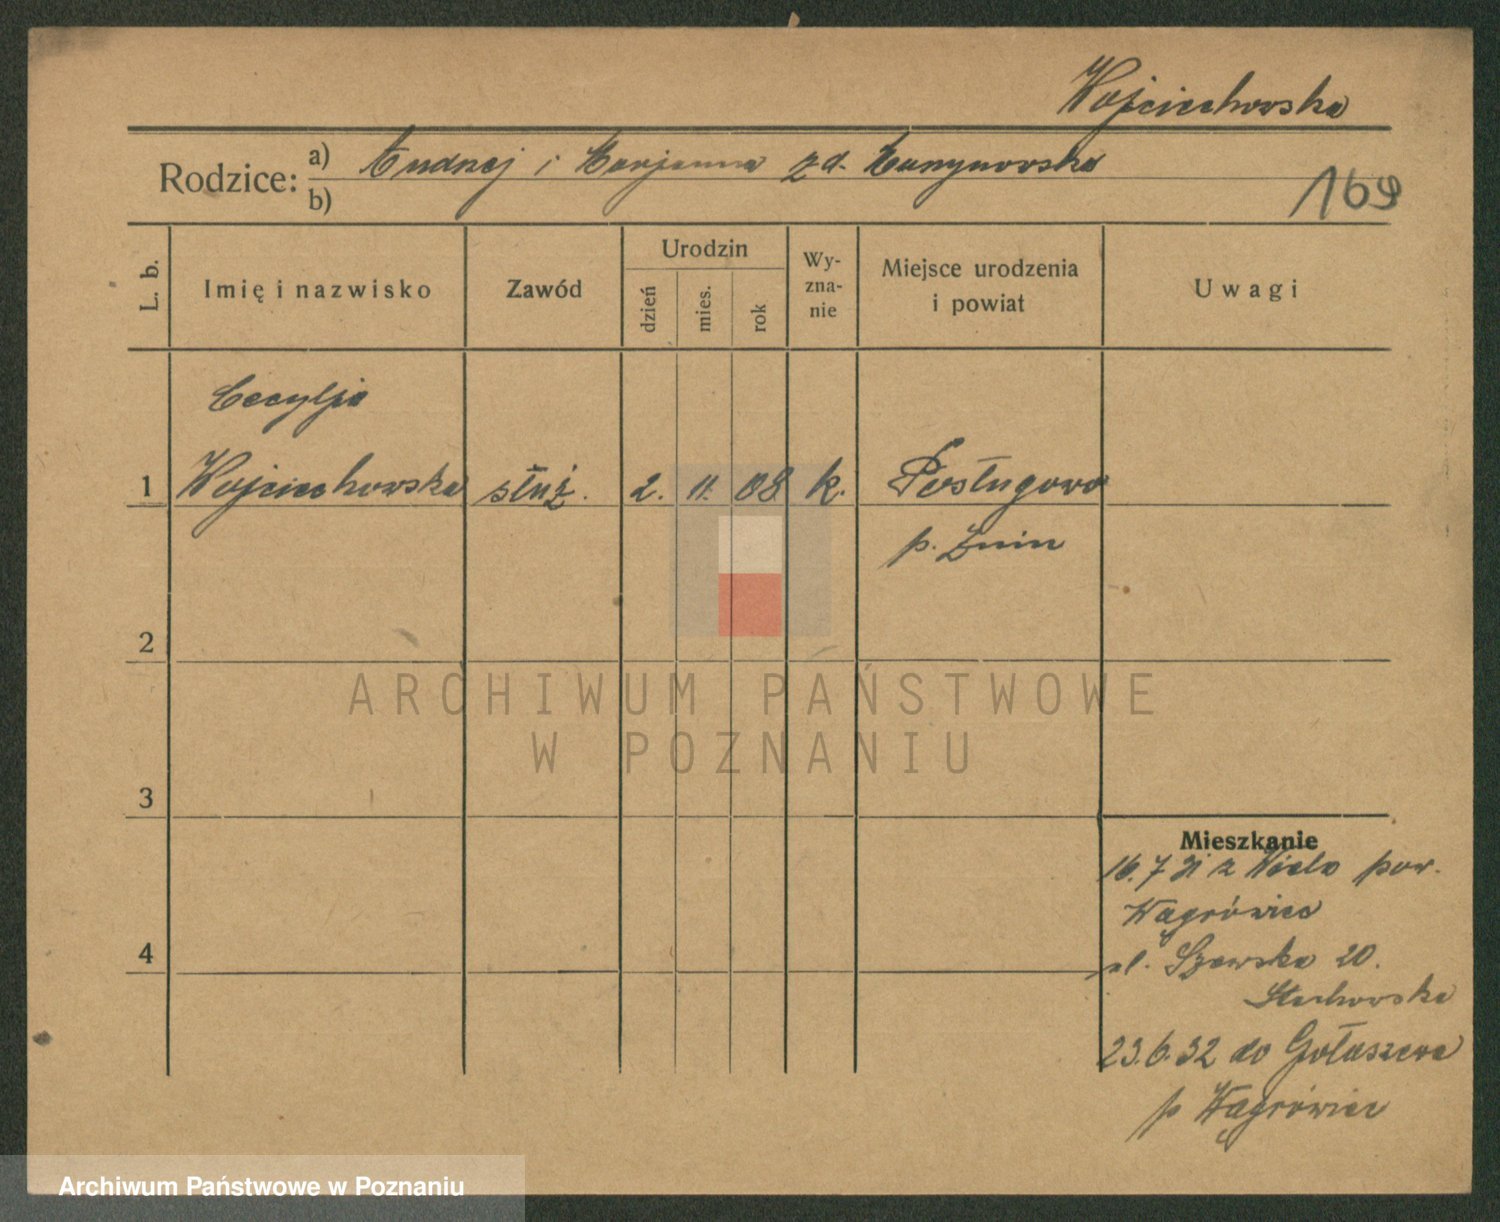 Wojciechowska
Rodzice: a) Andrzej i Marjanna zd.
b)
169
L. b.
Imię i nazwisko
Zawód
Urodzin
dzień
mies.
rok
Wy-
zna-
nie
Miejsce urodzenia
i powiat
Uwagi
Cecylja
1 Wojciechowska służ. 2. 11. 08 k. Posługowo
p. Żnin
2
3
4
Mieszkanie
16.7 31 z Wiela pow.
Wągrówiec
ul. Szewska 20.
Stachowska
23.6.32 do Gołaszewa
p Wągrówiec
ARCHIWUM PAŃSTWOWE
W POZNANIU
Archiwum Państwowe w Poznaniu